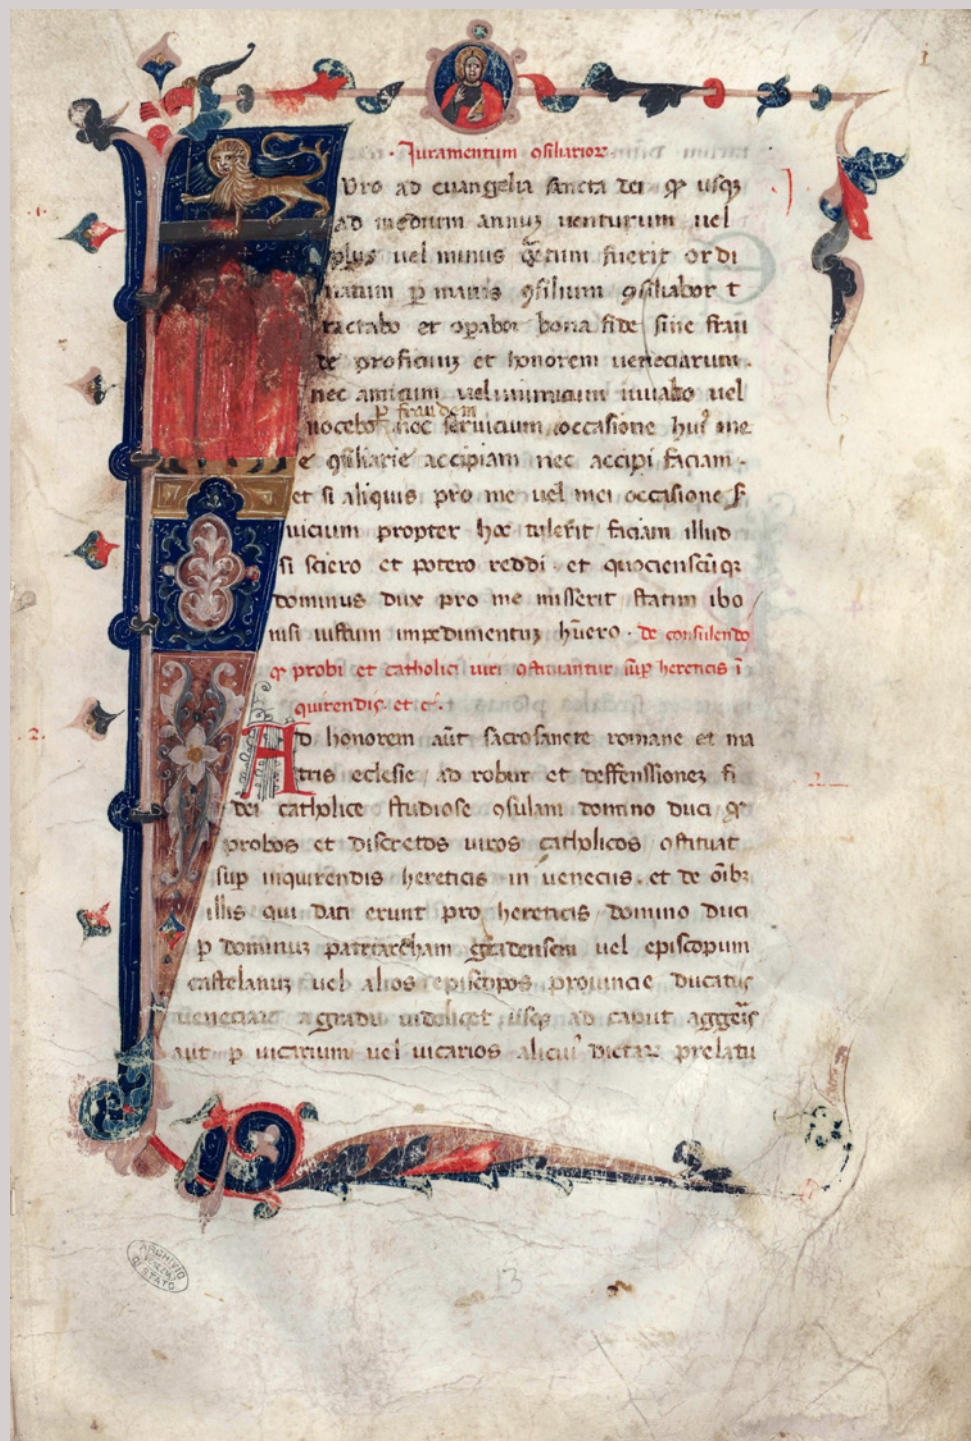 i
Iuramentum ꝯsiliarioꝝ
Uro ad euangelia sancta dei ꝙ usqꝫ
ad medium annuꝫ uenturum uel
plus uel minus fuerit ordi
natum ꝑ maius ꝯsilium ꝯsiliabor t
ractabo et oꝑabor bona fide sine frau
de proficuuꝫ et honorem ueneciarum.
nec amicum uel inimicum iuuabo uel
ꝑ fraudem
nocebo nec seruicium occasione huiꝰ me
e ꝯsiliarie accipiam nec accipi faciam.
et si aliquis pro me uel mei occasione ẜ
uicium propter hoc tulerit faciam illud
si sciero et potero reddi. et quocienscūqꝫ
dominus dux pro me misserit statim ibo
nisi iustum impedimentuꝫ hūero. de consulendo
ꝙ probi et catholici uiri ꝯstituantur suꝑ hereticis ī
quirendis et cͨ.
Ad honorem aūt sacrosancte romane et ma
tris eclesie ad robur et deffenssioneꝫ fi
dei catholice studiose ꝯsulam domino duci ꝙ
probos et discretos uiros catholicos ꝯstituat
suꝑ inquirendis hereticis in ueneciis. et de oībꝫ
illis qui dati erunt pro hereticis domino duci
ꝑ dominuꝫ patriarcham gradensem uel episcopum
castelanuꝫ uel alios episcopos prouincie ducatus
ueneciaꝝ a gradu uidelicet usqꝫ ad caput aggeris
aut ꝑ uicarium uel uicarios alicuiꝰ dictaꝝ prelatu
.1.
.2.
2
ARCHIVIO
DI STATO
13